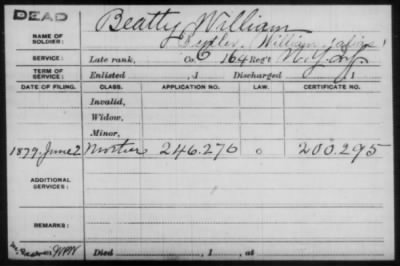 DEAD
Beatty, William
NAME OF SOLDIER: William (alias)
SERVICE: Late rank, Co. G 164 Reg't N.Y. Inf
TERM OF SERVICE: Enlisted , 1 Discharged , 1
DATE OF FILING. CLASS. APPLICATION NO. LAW. CERTIFICATE NO.
Invalid,
Widow,
Minor,
1879. June 2 Mother 246.276 o 200.295
ADDITIONAL SERVICES:
REMARKS:
Died , 1 , at